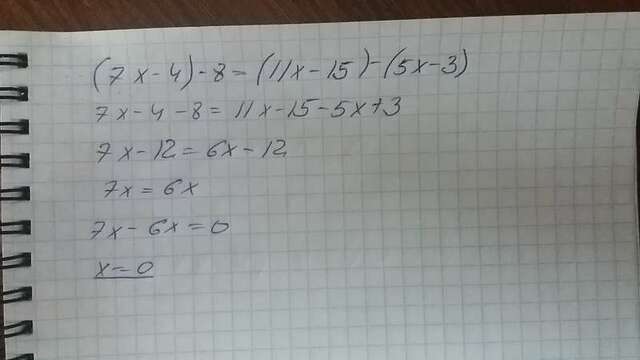 (7x-4)-8=(11x-15)-(5x-3)
7x-4-8=11x-15-5x+3
7x-12=6x-12
7x=6x
7x-6x=0
x=0